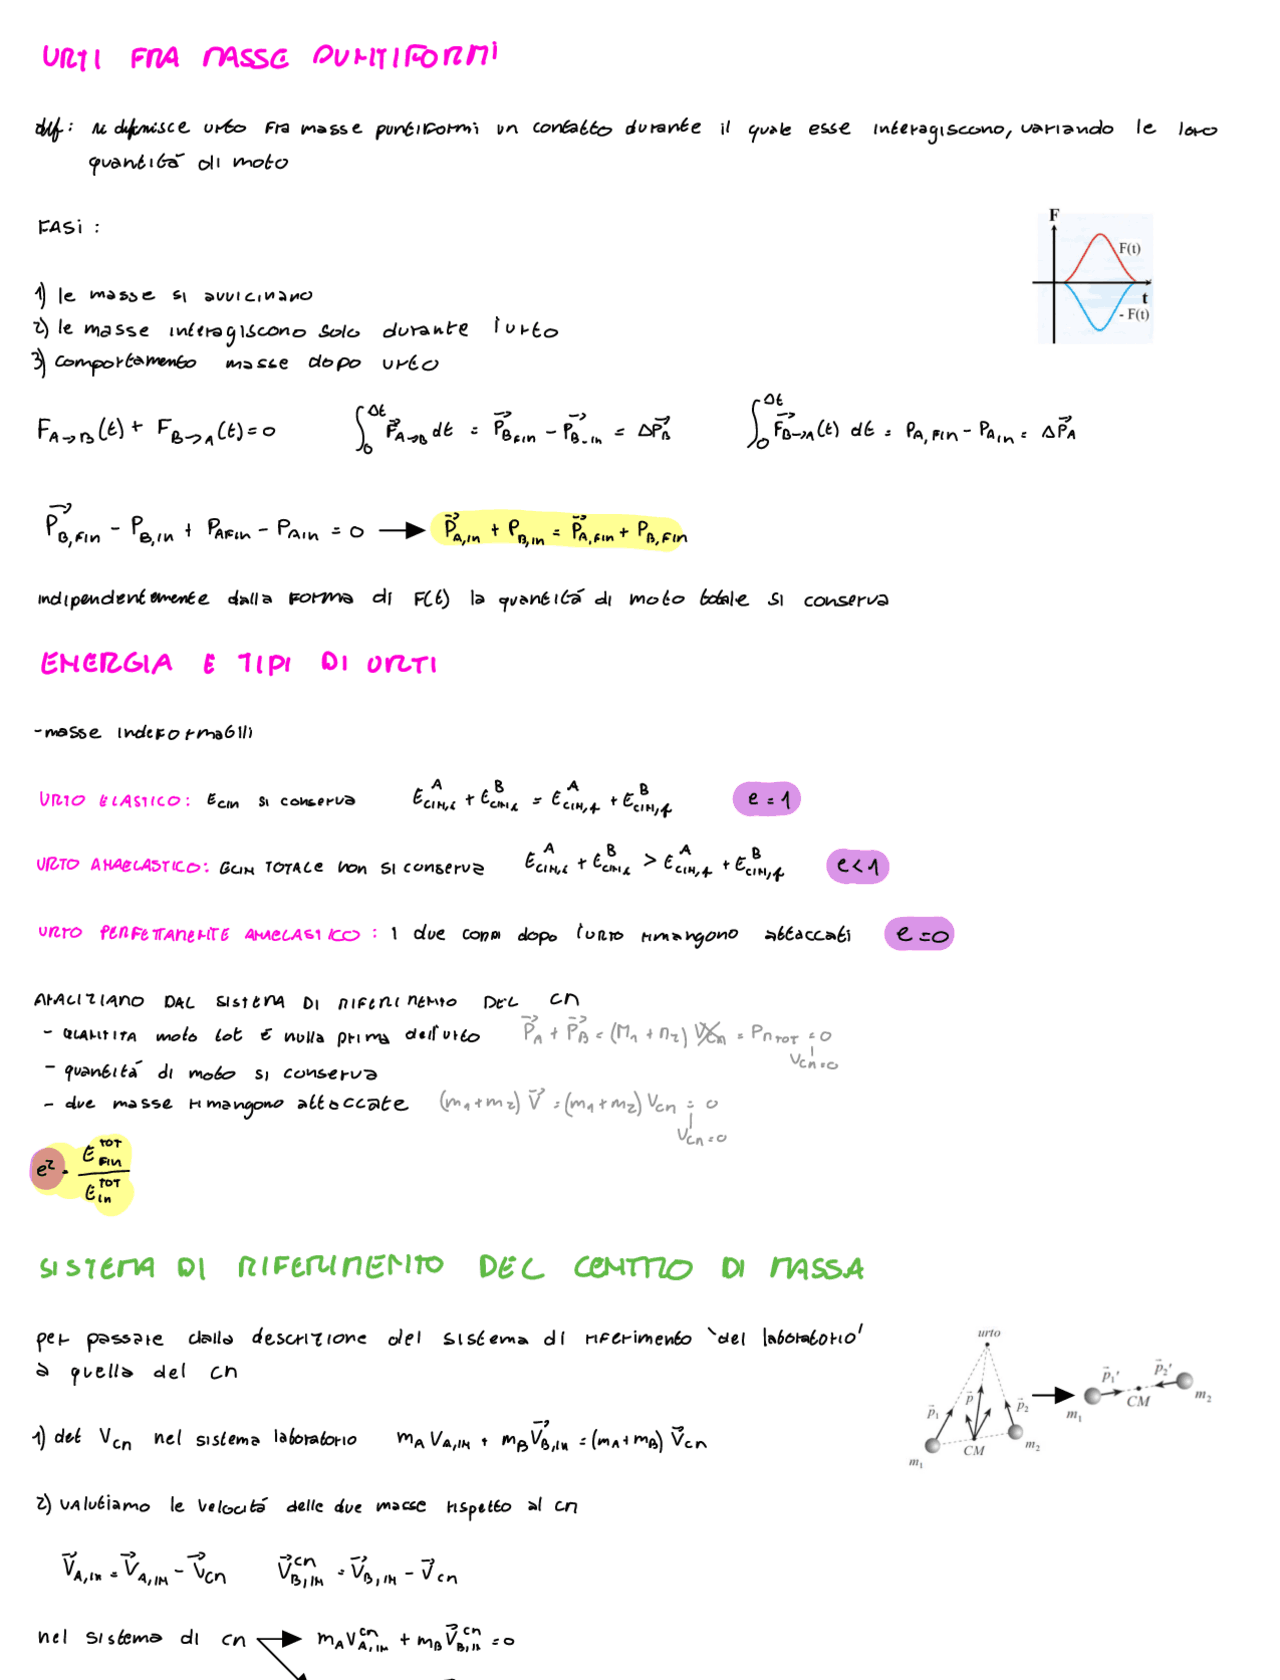 URTI FRA MASSE PUNTIFORMI
def: si definisce urto fra masse puntiformi un contatto durante il quale esse interagiscono, variando le loro
quantitá di moto
F
F(t)
t
- F(t)
FASI :
1) le masse si avvicinano
2) le masse interagiscono solo durante l'urto
3) comportamento masse dopo urto
F_A→B (t) + F_B→A (t) = 0   ∫_0^Δt P⃗_A→B dt = P⃗_B,FIN - P⃗_B,IN = ΔP⃗_B   ∫_0^Δt F⃗_B→A (t) dt = P_A,FIN - P_A,IN = ΔP⃗_A
P⃗_B,FIN - P_B,IN + P_A,FIN - P_A,IN = 0 → P⃗_A,IN + P_B,IN = P⃗_A,FIN + P_B,FIN
indipendentemente dalla forma di F(t) la quantitá di moto totale si conserva
ENERGIA E TIPI DI URTI
- masse indeformabili
URTO ELASTICO: Ecin si conserva   E^A_CIN,i + E^B_CIN,i = E^A_CIN,f + E^B_CIN,f   e = 1
URTO ANAELASTICO: ECIN TOTALE non si conserva   E^A_CIN,i + E^B_CIN,i > E^A_CIN,f + E^B_CIN,f   e < 1
URTO PERFETTAMENTE ANAELASTICO : i due corpi dopo l'urto rimangono attaccati   e = 0
ANALIZZIAMO DAL SISTEMA DI RIFERIMENTO DEL CM
- QUANTITA moto tot É nulla prima dell'urto   P⃗_A + P⃗_B = (M_1 + M_2) V_CM = P_M TOT = 0
V_CM = 0
- quantitá di moto si conserva
- due masse rimangono attaccate   (m_1 + m_2) V⃗ = (m_1 + m_2) V_CM = 0
V_CM = 0
e² = E^TOT_FIN / E^TOT_IN
SISTEMA DI RIFERIMENTO DEL CENTRO DI MASSA
per passare dalla descrizione del sistema di riferimento 'del laboratorio'
a quella del CM
urto
p⃗_1
p⃗
p⃗_2
m_1
CM
m_2
p⃗_1'
p⃗_2'
m_1
CM
m_2
1) det V_CM nel sistema laboratorio   m_A V_A,IN + m_B V⃗_B,IN = (m_A + m_B) V⃗_CM
2) valutiamo le velocitá delle due masse rispetto al CM
V⃗_A,IN = V⃗_A,IN - V⃗_CM   V⃗^CM_B,IN = V⃗_B,IN - V⃗_CM
nel sistema di CM → m_A V^CM_A,IN + m_B V⃗^CM_B,IN = 0